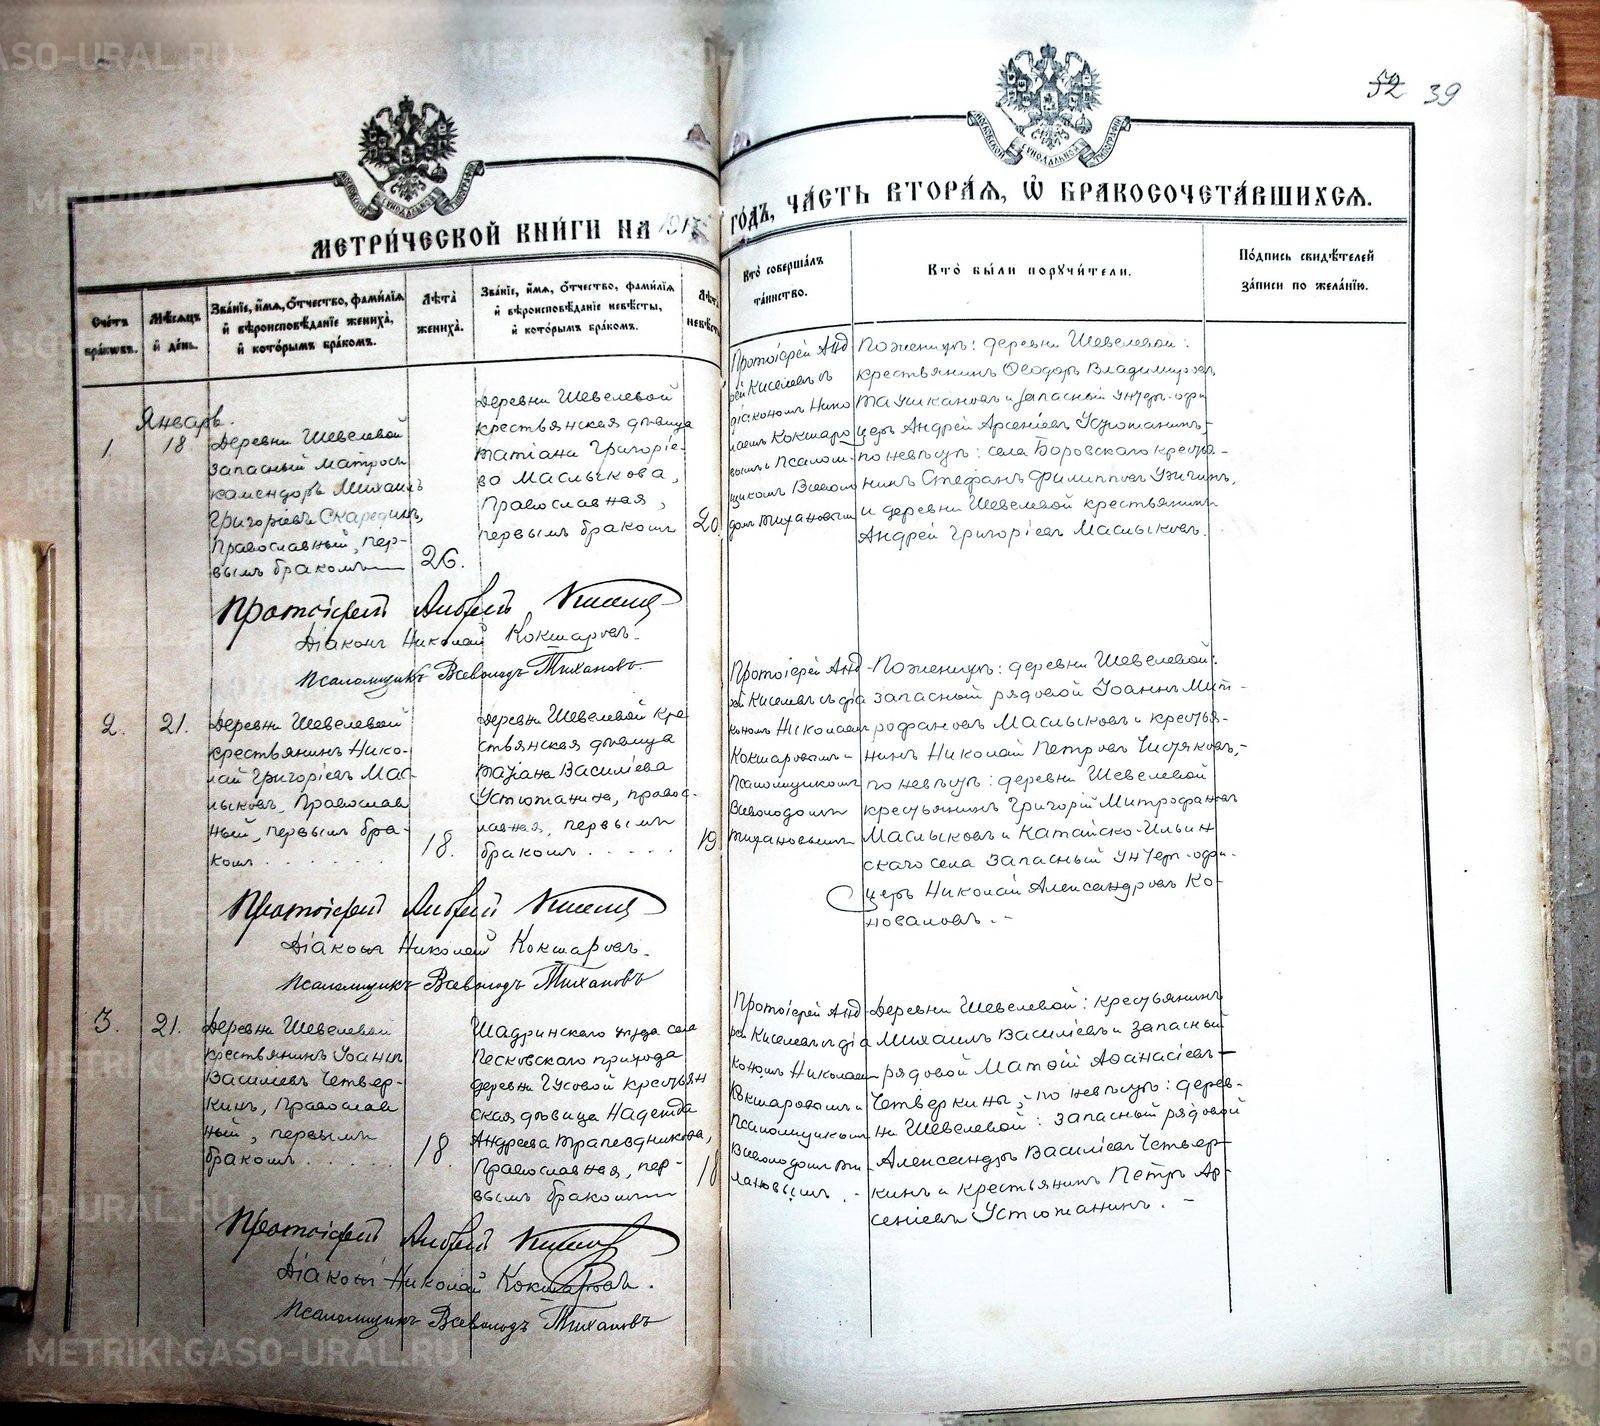 52 39
МЕТРИ́ЧЕСКОЙ КНИ́ГИ НА 191 ГО́ДЪ, ЧА́СТЬ ВТОРА́Ѧ, Ѽ БРАКОСОЧЕТА́ВШИХСѦ.
Сче́тъ бра́кѡвъ.
Мѣ́сѧцъ и҆ де́нь.
Зва́нїе, и҆́мѧ, ѻ҆́тчество, фами́лїѧ и҆ вѣроисповѣ́данїе жениха̀, и҆ кото́рымъ бра́комъ.
Лѣ́та жениха̀.
Зва́нїе, и҆́мѧ, ѻ҆́тчество, фами́лїѧ и҆ вѣроисповѣ́данїе невѣ́сты, и҆ кото́рымъ бра́комъ.
Лѣ́та невѣ́сты
Кто̀ соверша́лъ та́инство.
Кто̀ бы́ли порꙋчи́тели.
По́дпись свидѣ́телей за́писи по жела́нїю.
Январь.
1.
18
Деревни Шевелевой
запасный матросъ
комендоръ Михаилъ
Григорiевъ Скарединъ,
Православный, пер-
вымъ бракомъ
26.
Деревни Шевелевой
крестьянская дѣвица
Татiана Григорiе-
ва Маслыкова,
Православная,
первымъ бракомъ
20.
Протоiерей Анд
рей Киселевъ съ
дiакономъ Нико
лаемъ Кокшаро
вымъ и Псалом-
щикомъ Всеволо
домъ Тихановым
По женихѣ: деревни Шевелевой:
крестьянинъ Ѳеодоръ Владимiровъ
и запасный унтеръ-офи
церъ Андрей Арсенiевъ Устюжанинъ-
по невѣстѣ: села Боровского кресть-
нинъ Стефанъ Филипповъ
и деревни Шевелевой крестьянинъ
Андрей Григорiевъ Маслыковъ.
Протоiерей Андрей Киселевъ
Дiаконъ Николай Кокшаровъ.
Псаломщикъ Всеволодъ Тихановъ.
2.
21.
Деревни Шевелевой
крестьянинъ Нико-
лай Григорiевъ Мас-
лыковъ, Православ
ный, первымъ бра-
комъ
18.
Деревни Шевелевой кре
стьянская дѣвица
Татiана Василiева
Устюжанина, правос-
лавная, первымъ
бракомъ
19
Протоiерей Анд
рей Киселевъ съ дiа
кономъ Николаем
Кокшаровымъ и
Псаломщикомъ
Всеволодомъ
Тихановымъ
По женихѣ: деревни Шевелевой:
запасный рядовой Iоаннъ Мит-
рофановъ Маслыковъ и крестья-
нинъ Николай Петровъ Чистяковъ,-
по невѣстѣ: деревни Шевелевой
крестьянинъ Григорiй Митрофановъ
Маслыковъ и Катайско-Ильин
скаго села запасный унтеръ-офи-
церъ Николай Александровъ Ко-
новаловъ.-
Протоiерей Андрей Киселевъ
Дiаконъ Николай Кокшаровъ.
Псаломщикъ Всеволодъ Тихановъ
3.
21.
Деревни Шевелевой
крестьянинъ Iоаннъ
Василiевъ Четвер-
кинъ, Православ
ный, первымъ
бракомъ
18.
Шадринскаго уѣзда села
Песковскаго прихода
деревни Гусовой крестьян
ская дѣвица Надежда
Андреева Трапездникова,
Православная, пер-
вымъ бракомъ
18
Протоiерей Анд
рей Киселевъ съ дiа
кономъ Николаем
Кокшаровымъ и
Псаломщикомъ
Всеволодомъ Ти-
хановымъ.-
Деревни Шевелевой: крестьянинъ
Михаилъ Василiевъ и запасный
рядовой Матѳiй Аѳанасiевъ
Четверкины; по невѣстѣ: дерев-
ни Шевелевой: запасный рядовой
Александръ Василiевъ Четвер-
кинъ и крестьянинъ Петръ Ар-
сенiевъ Устюжанинъ.-
Протоiерей Андрей Киселевъ
Дiаконъ Николай Кокшаровъ.
Псаломщикъ Всеволодъ Тихановъ
METRIKI.GASO-URAL.RU